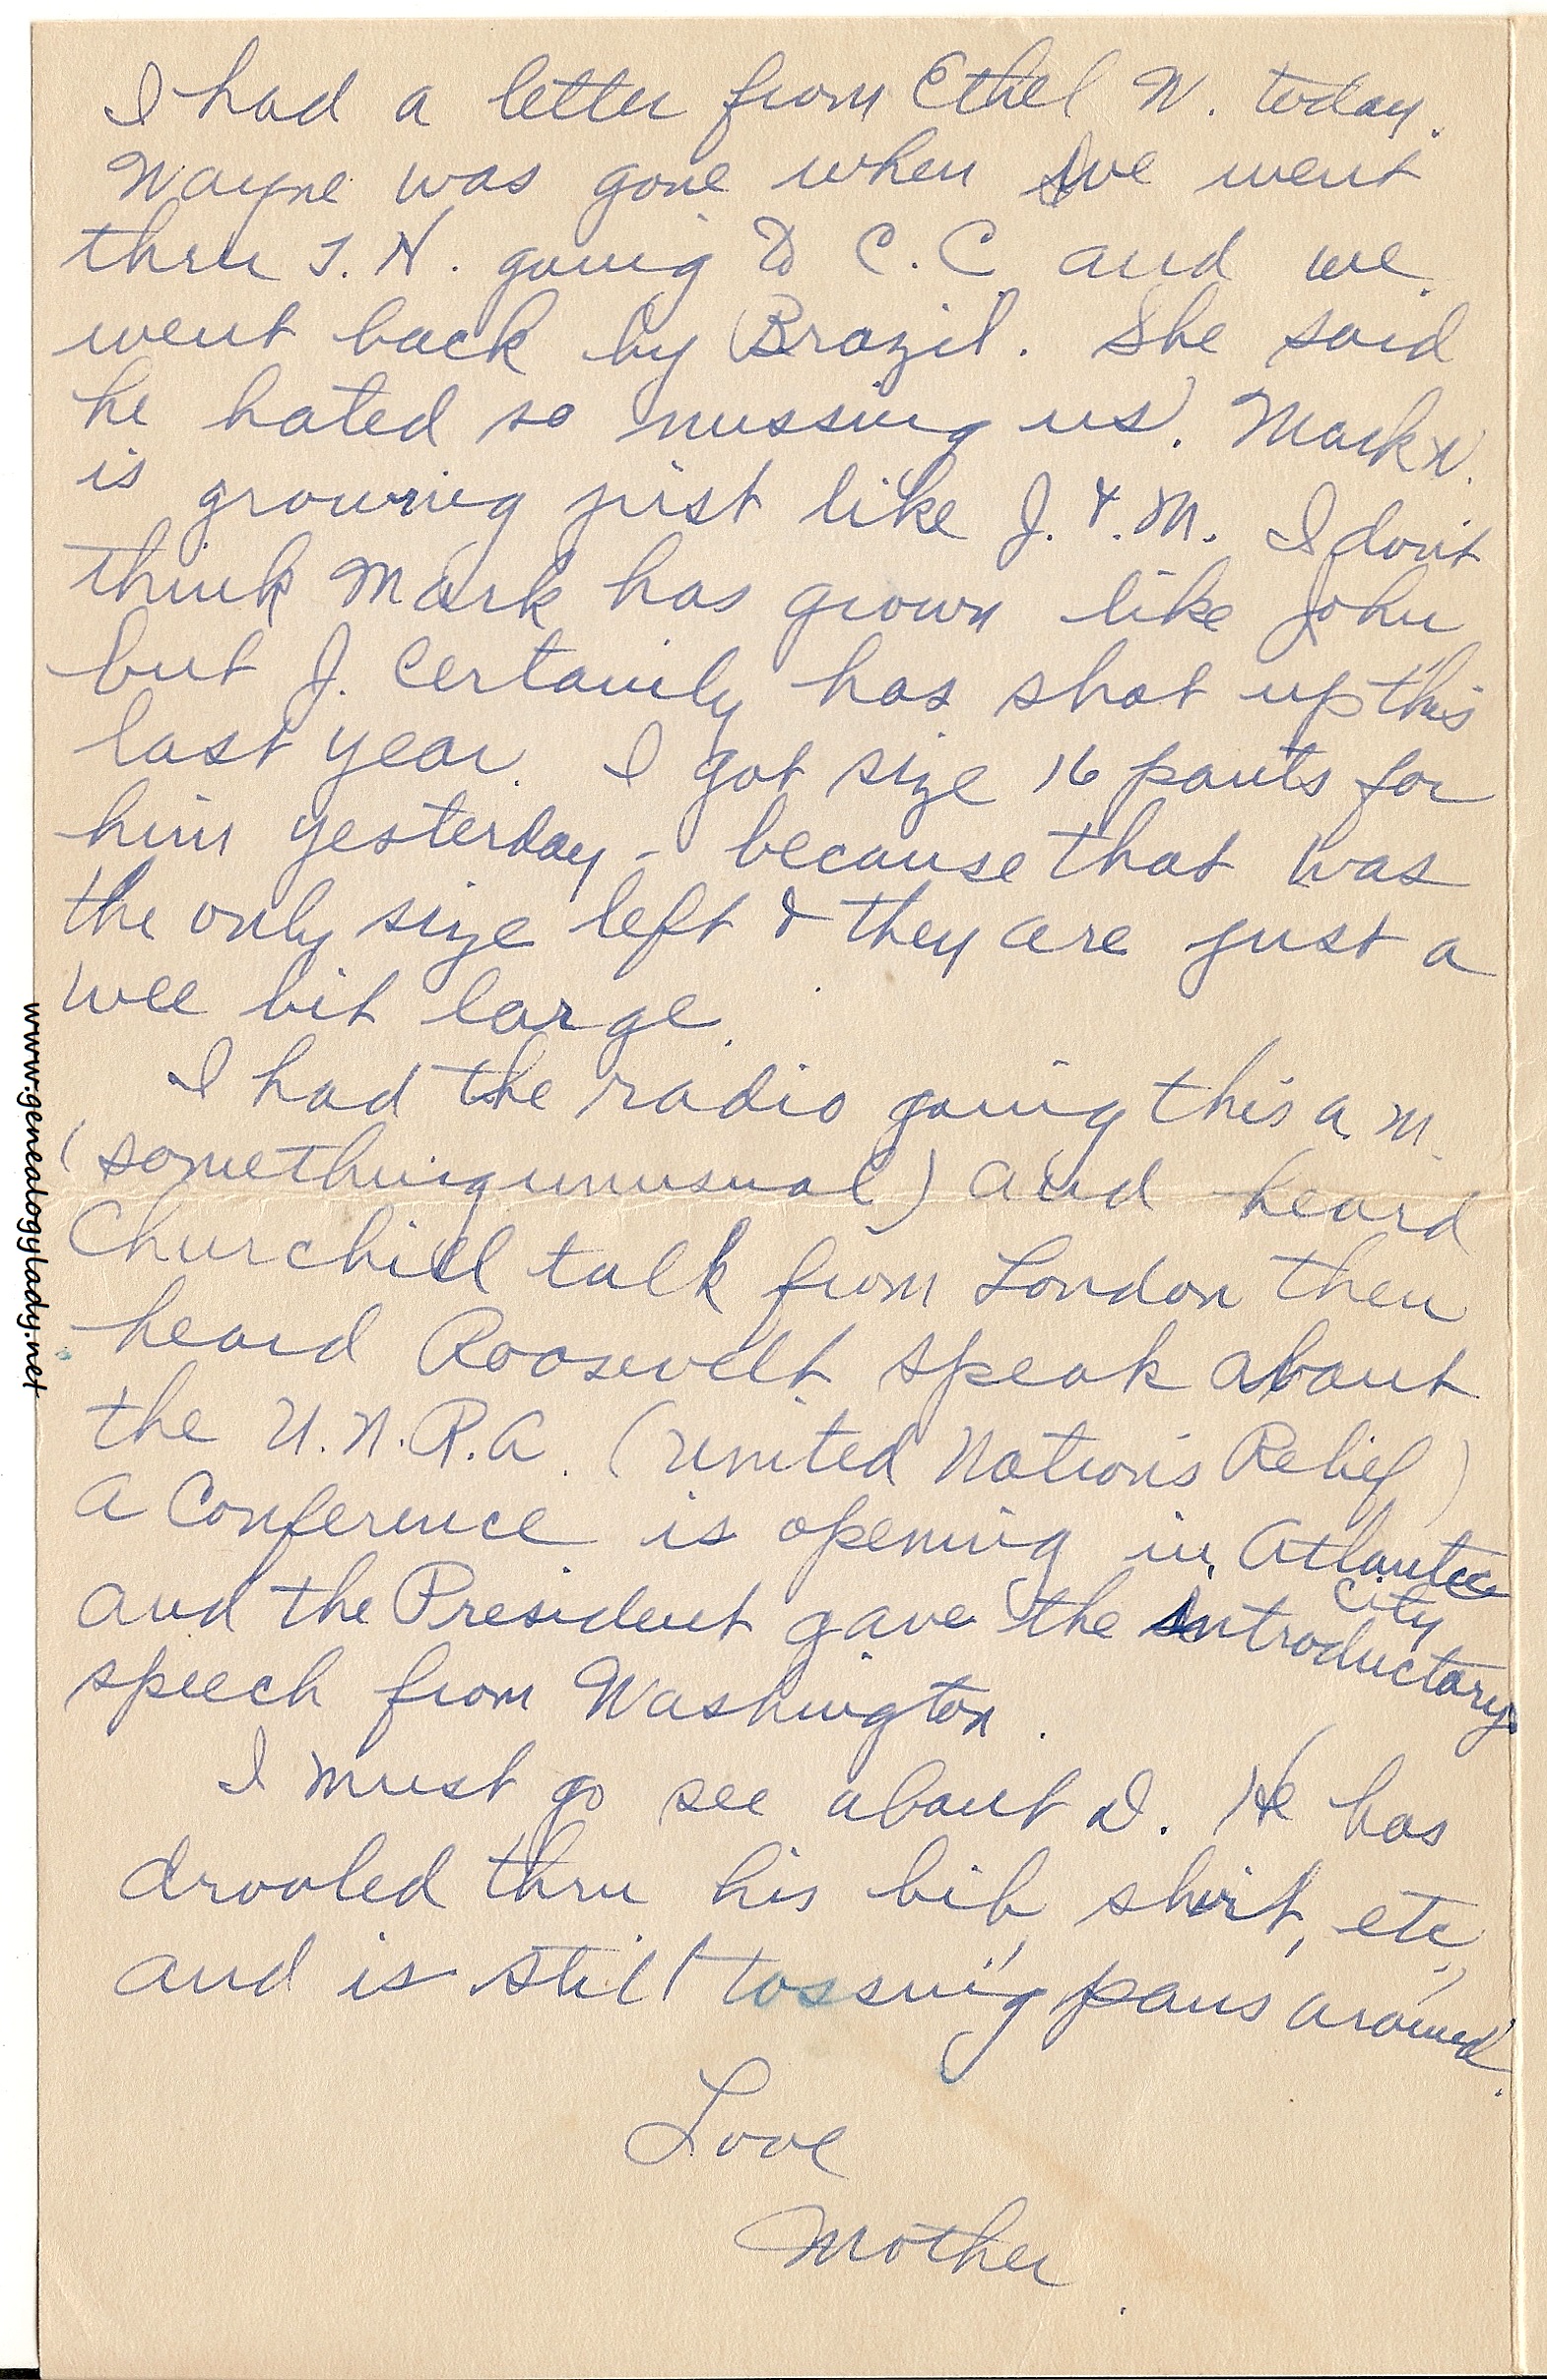 I had a letter from Ethel W. today.
Wayne was gone when we went
thru T.H. going to C.C. and we
went back by Brazil. She said
he hated so missing us. Mark W.
is growing just like J. & M. I don't
think Mark has grown like John
but J. certainly has shot up this
last year. I got size 16 pants for
him yesterday - because that was
the only size left & they are just a
wee bit large.
I had the radio going this a.m.
(something unusual) and heard
Churchill talk from London then
heard Roosevelt speak about
the U.N.R.A. (United Nations Relief)
A Conference is opening in Atlantic
City
and the President gave the introductory
speech from Washington.
I must go see about D. He has
drooled thru his bib, shirt, etc.,
and is still tossing pans around.
Love
Mother
www.genealogylady.net